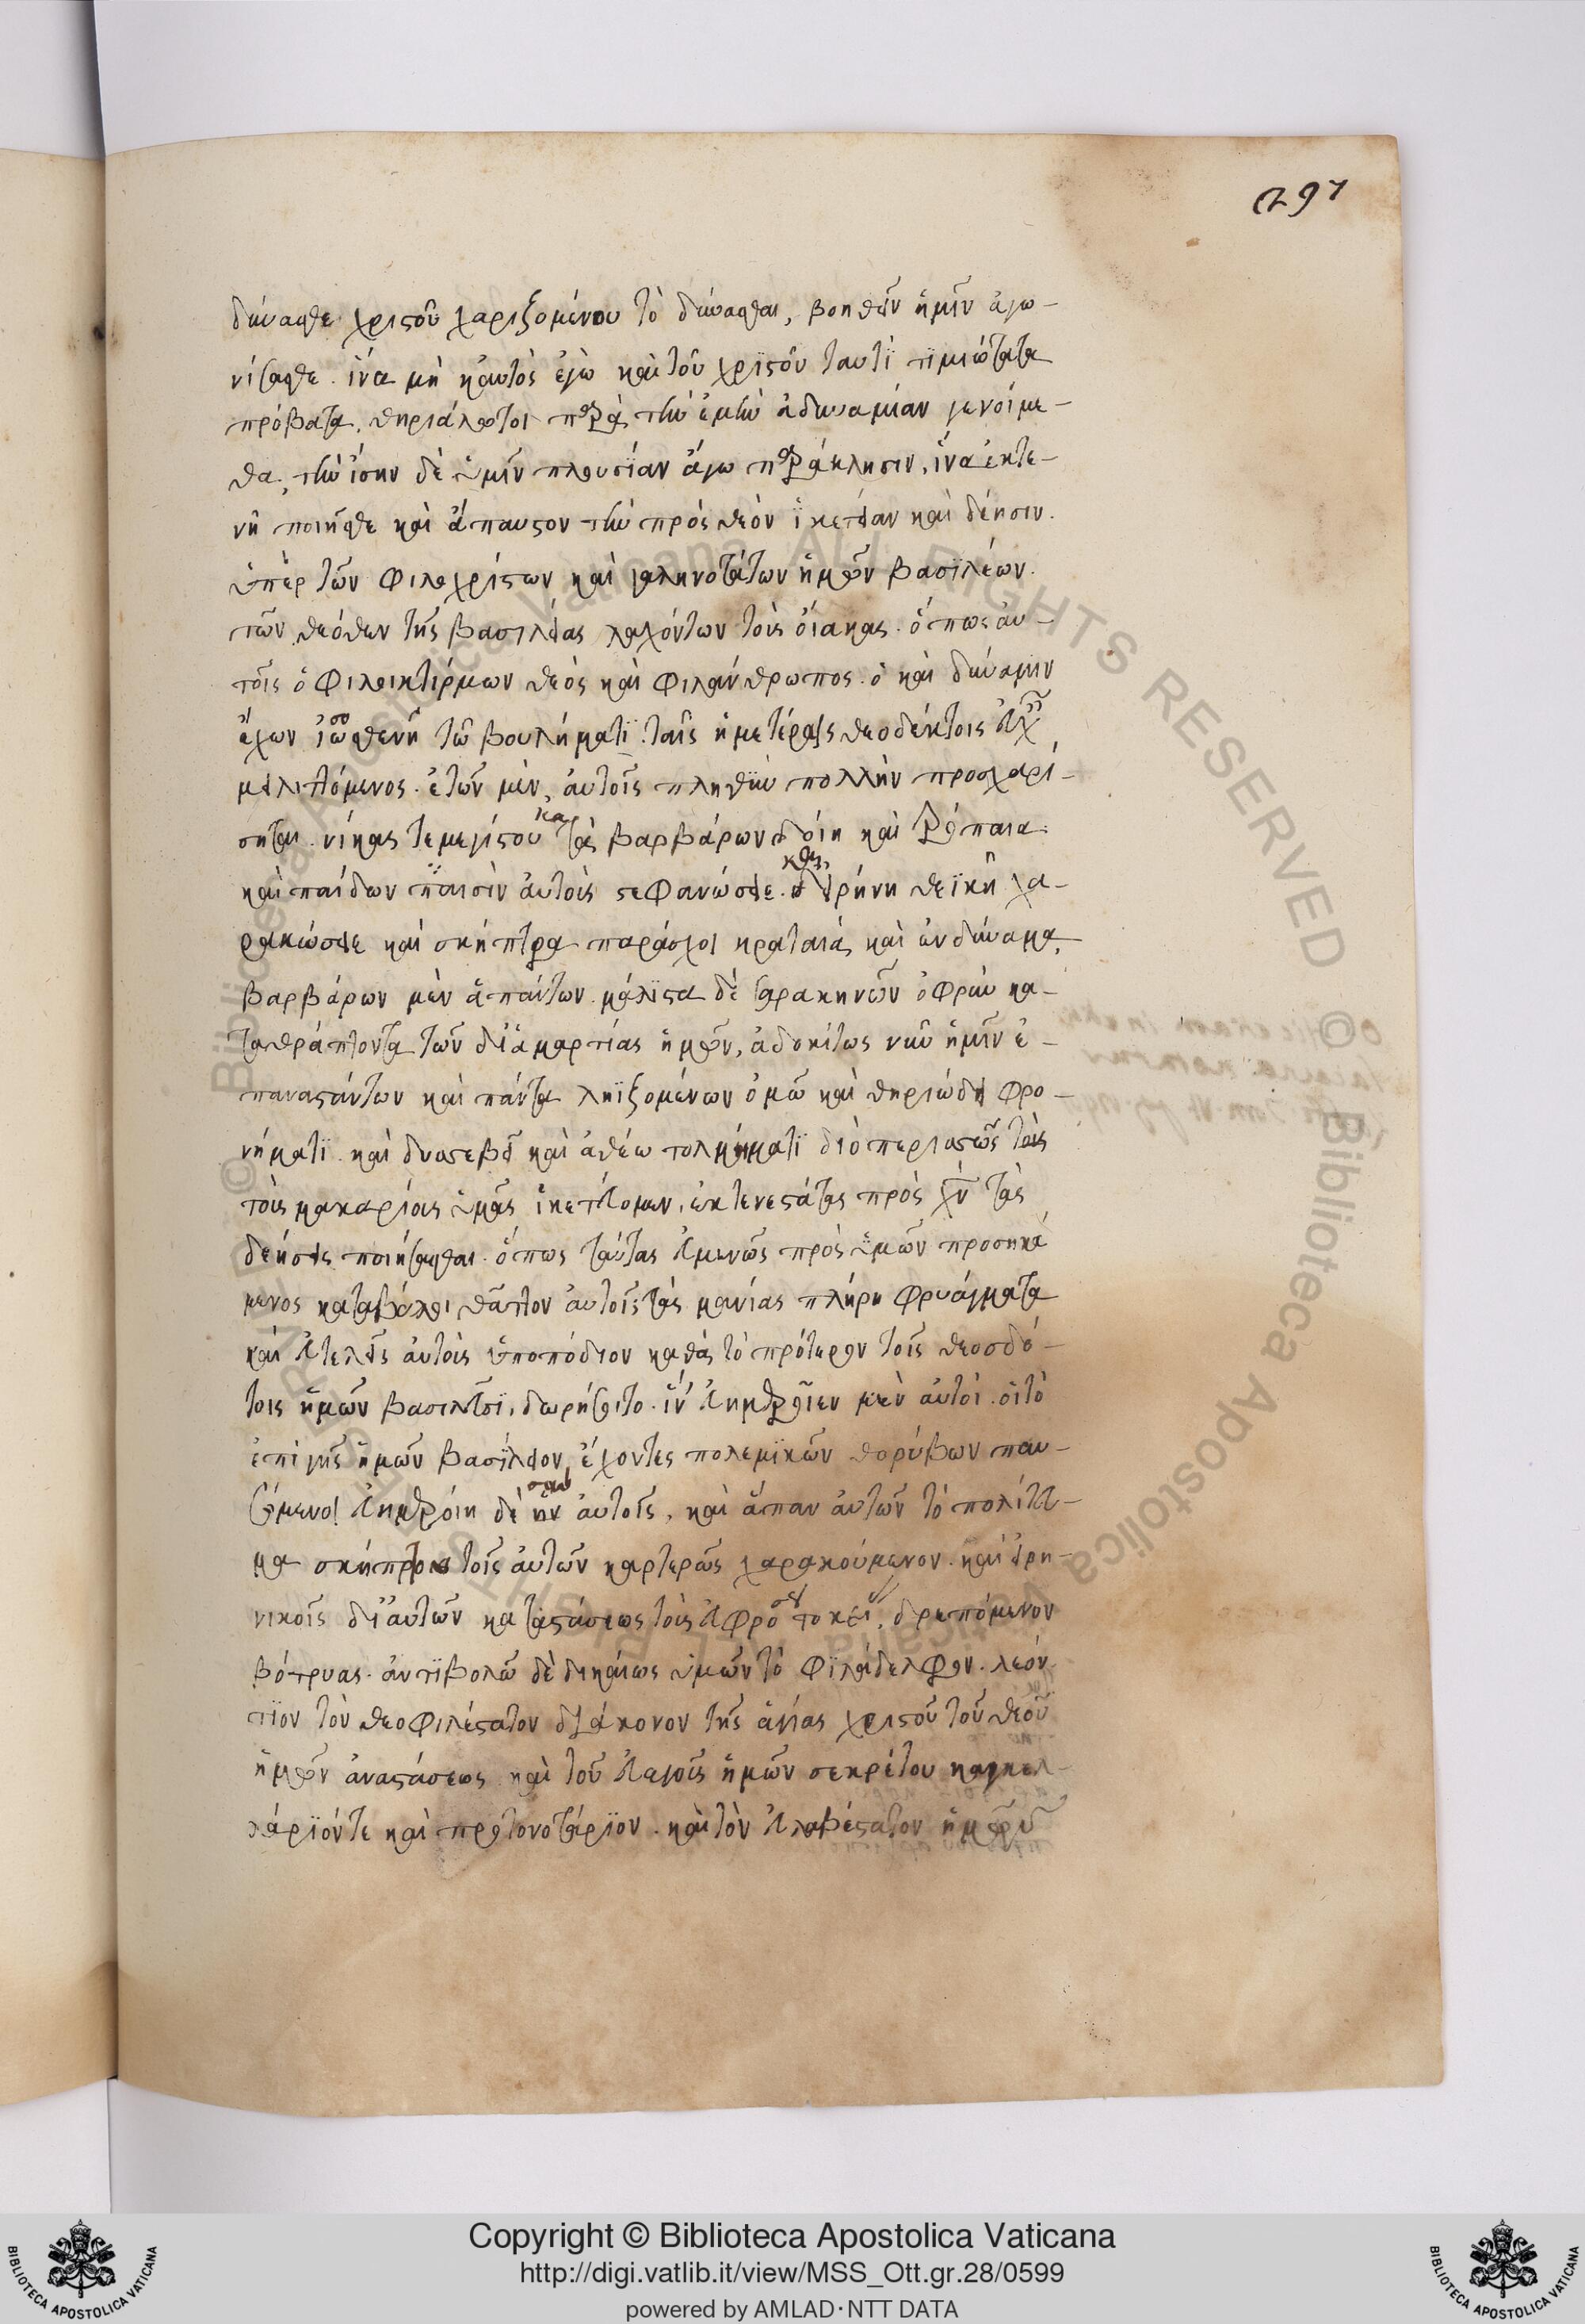 297
δύνασθε χριστοῦ χαριζομένου τὸ δύνασθαι, βοηθεῖν ἡμῖν ἀγω-
νίσασθε. ἵνα μὴ καὐτὸς ἐγὼ καὶ τοῦ χριστοῦ ταυτὶ τιμιώτατα
πρόβατα, θηριάλωτοι παρὰ τὴν ἐμὴν ἀδυναμίαν γενοίμε-
θα, τὴν ἴσην δὲ ὑμῖν πλουσίαν ἄγω παράκλησιν, ἵνα ἐκτε-
νῆ ποιῆσθε καὶ ἄπαυστον τὴν πρὸς θεὸν ἱκετείαν καὶ δέησιν.
ὑπὲρ τῶν φιλοχρίστων καὶ γαληνοτάτων ἡμῶν βασιλέων.
τῶν θεόθεν τῆς βασιλείας λαχόντων τοὺς οἴακας. ὅπως αὐ-
τοῖς ὁ φιλοικτίρμων θεὸς καὶ φιλάνθρωπος. ὁ καὶ δύναμιν
ἔχων ἰσοσθενῆ τῶ βουλήματι. ταῖς ἡμετέραις θεοδέκτοις εὐχ
μειλιττόμενος. ἐτῶν μὲν αὐτοῖς πληθὺν πολλὴν προσχαρί-
σηται. νίκας τε μεγίστου κατὰ βαρβάρων δοίη καὶ τρόπαια.
καὶ παίδων παισὶν αὐτοὺς στεφανώσειε. καὶ εἰρήνη θεϊκῆ χα-
ρακώσειε καὶ σκήπτρα παράσχοι κραταιά, καὶ ἐνδύναμα,
βαρβάρων μὲν ἁπάντων. μάλιστα δὲ σαρακηνῶν ὀφρὺν κα-
ταθράττοντα τῶν δι' ἁμαρτίας ἡμῶν, ἀδοκίτως νῦν ἡμῖν ἐ-
παναστάντων καὶ πάντα ληϊζομένων ὁμῶ καὶ θηριώδει φρο-
νήματι. καὶ δυσσεβεῖ καὶ ἀθέω τολμήματι διὸ περισσῶς τοὺς
τοὺς μακαρίους ὑμᾶς ἱκετεύομεν, ἐκτενεστάτας πρὸς χν τὰς
δεήσεις ποιήσασθαι. ὅπως ταύτας εὐμενῶς πρὸς ὑμῶν προσηκά
μενος καταβάλοι θᾶττον αὐτοῖς τὰς μανίας πλήρη φρυάγματα
καὶ εὐτελεῖς αὐτοὺς ὑποπόδιον καθὰ τὸ πρότερον τοῖς θεοσδό-
τοις ἡμῶν βασιλεῦσι, δωρήσοιτο. ἵν' εὐημεροῖεν μὲν αὐτοὶ. οἱ τὸ
ἐπὶ γῆς ἡμῶν βασίλειον ἔχοντες πολεμικῶν θορύβων παυ-
σόμενοι εὐημεροίη δὲ σὺν αὐτοῖς, καὶ ἅπαν αὐτῶν τὸ πολίτευ-
μα σκήπτροις τοῖς αὐτῶν καρτερῶς χαρακούμενον. καὶ εἰρη-
νικοῖς δι' αὐτῶν καταστάσεως τοὺς εὐφροσύ τοκεῖ, δρεπόμενον
βότρυας. ἀντιβολῶ δὲ δικαίως ὑμῶν τὸ φιλάδελφον. λεόν
τιον τὸν θεοφιλέστατον διάκονον τῆς ἁγίας χριστοῦ τοῦ θεοῦ
ἡμῶν ἀναστάσεως καὶ τοῦ εὐαγοῦς ἡμῶν σεκρέτου καγκελ-
λάριόν τε καὶ πρωτονοτάριον. καὶ τὸν εὐλαβέστατον ἡμῶν
© Biblioteca Apostolica Vaticana ALL RIGHTS RESERVED © Biblioteca Apostolica Vaticana ALL RIGHTS RESERVED
Copyright © Biblioteca Apostolica Vaticana
http://digi.vatlib.it/view/MSS_Ott.gr.28/0599
powered by AMLAD · NTT DATA
BIBLIOTECA APOSTOLICA VATICANA
BIBLIOTECA APOSTOLICA VATICANA